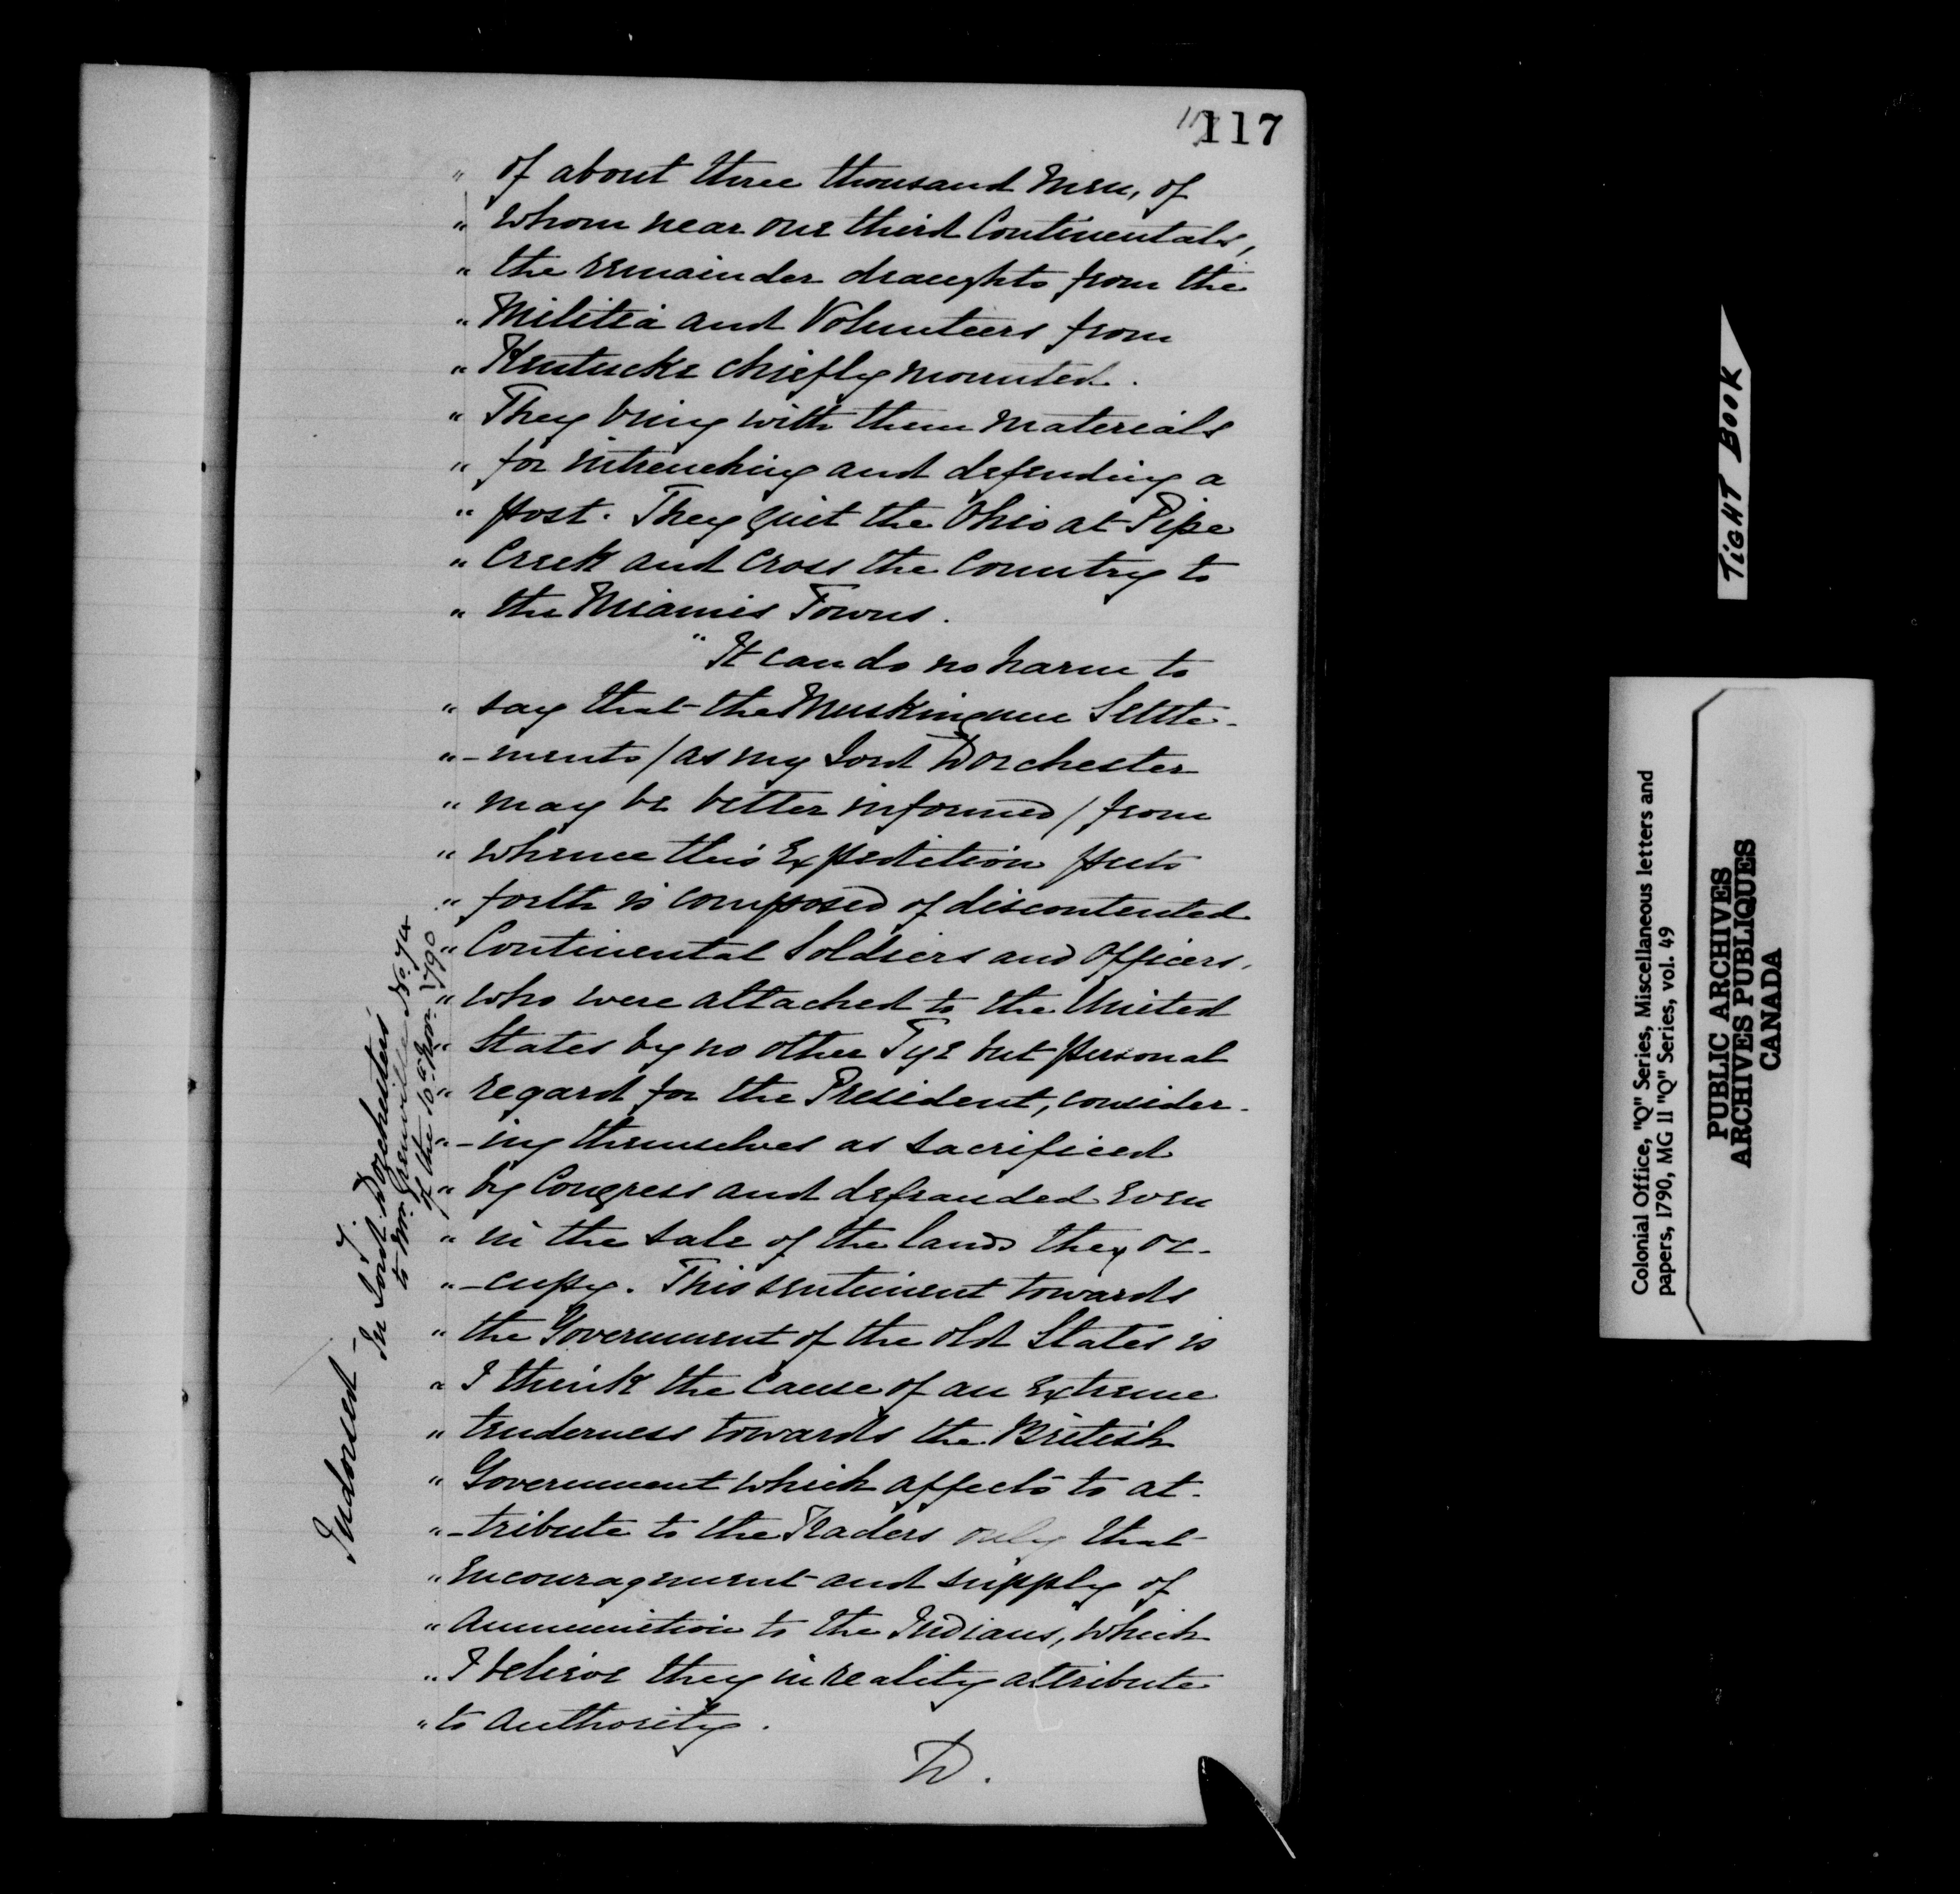 117
" of about three thousand Men, of
" whom near one third Continentals,
" the remainder draughts from the
" Militia and Volunteers from
" Kentucke chiefly mounted.
" They bring with them Materials
" for intrenching and defending a
" post. They quit the Ohio at Pipe
" Creek and cross the Country to
" the Miamis Towns.
" It can do no harm to
" say that the Muskingum Settle-
" -ments / as my Lord Dorchester
" may be better informed / from
" whence this Expedition puts
" forth is composed of discontented
" Continental Soldiers and Officers,
" who were attached to the United
" States by no other Tye but personal
" regard for the President, consider-
" -ing themselves as sacrificed
" by Congress and defrauded even
" in the sale of the lands they oc-
" -cupy. This sentiment towards
" the Government of the old States is
" I think the cause of an extreme
" tenderness towards the British
" Government which affects to at-
" -tribute to the Traders only that
" encouragement and supply of
" ammunition to the Indians, which
" I believe they in reality attribute
" to authority.
D.
Indorsed -
In Lord Dorchester's
to Mr. Grenville No. 74
of the 10th Nov. 1790
TIGHT BOOK
Colonial Office, "Q" Series, Miscellaneous letters and
papers, 1790, MG 11 "Q" Series, vol. 49
PUBLIC ARCHIVES
ARCHIVES PUBLIQUES
CANADA